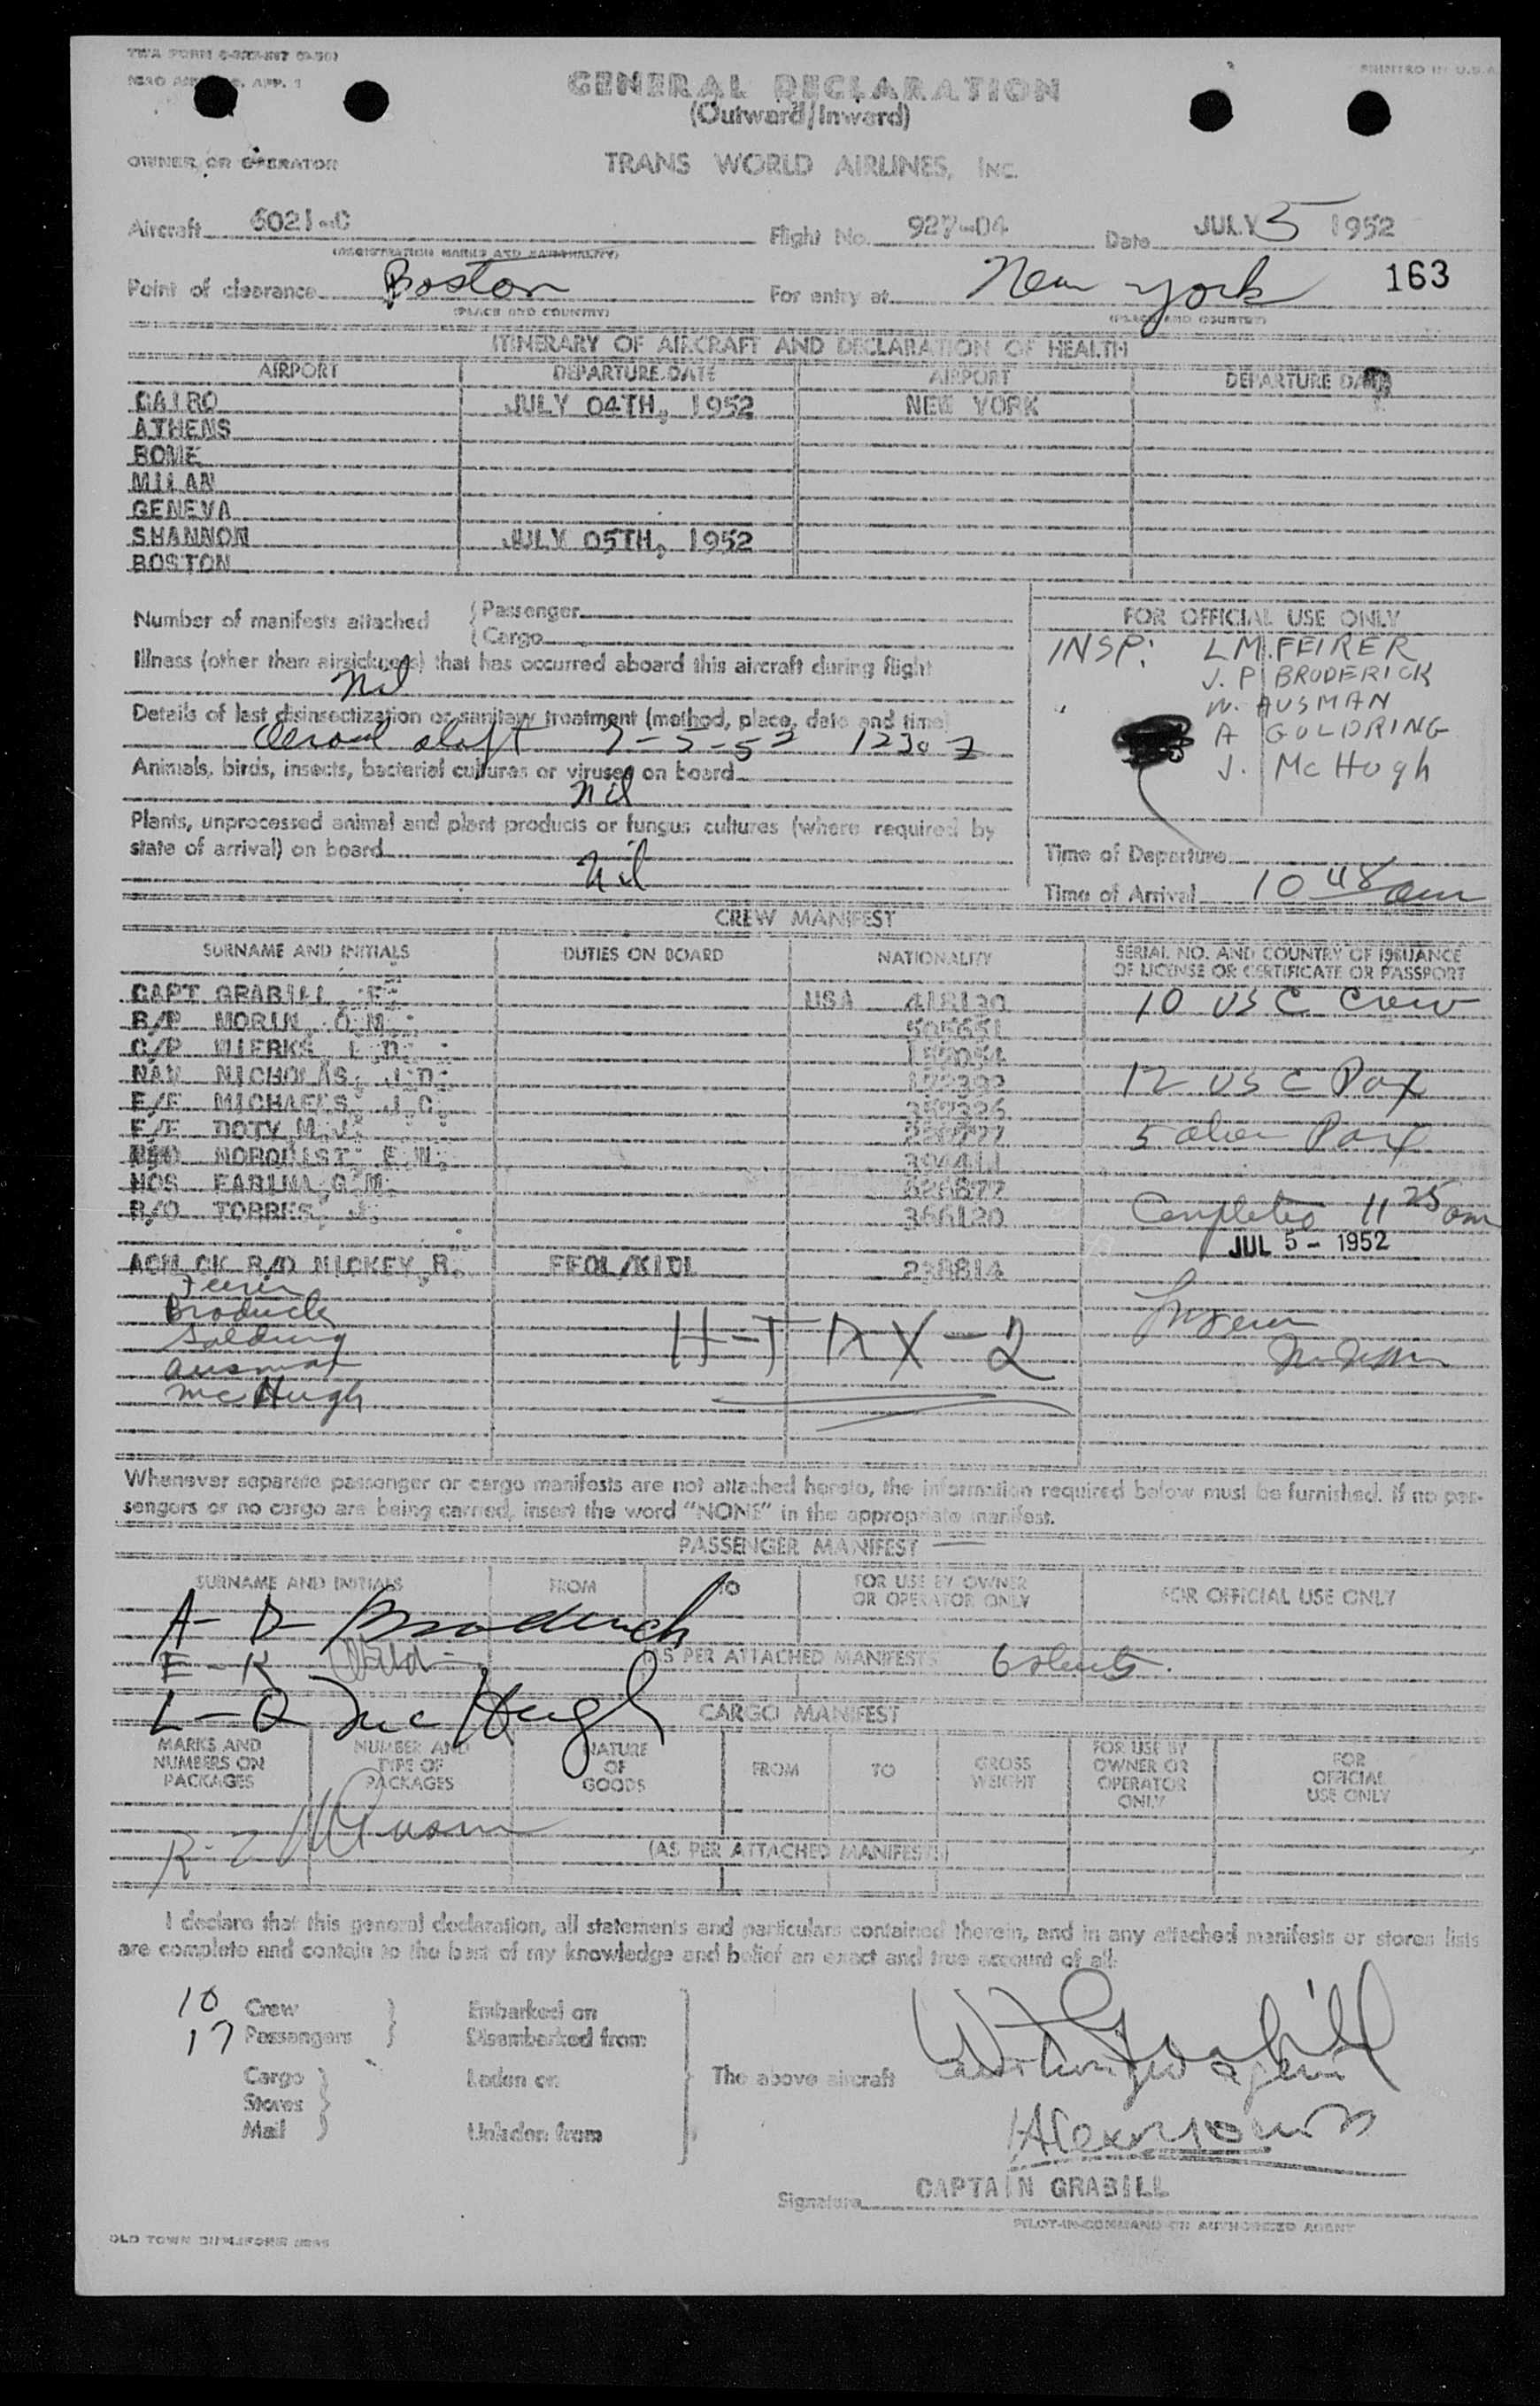 GENERAL DECLARATION
PRINTED IN U.S.A.
(Outward/Inward)
OWNER OR OPERATOR
TRANS WORLD AIRLINES, INC.
Aircraft 6021-C Flight No. 927-04 Date JULY 5 1952
(REGISTRATION MARKS AND NATIONALITY)
Point of clearance Boston For entry at New York 163
(PLACE AND COUNTRY) (PLACE AND COUNTRY)
ITINERARY OF AIRCRAFT AND DECLARATION OF HEALTH
AIRPORT DEPARTURE DATE AIRPORT DEPARTURE DATE
CAIRO JULY 04TH, 1952 NEW YORK
ATHENS
ROME
MILAN
GENEVA
SHANNON JULY 05TH, 1952
BOSTON
Number of manifests attached Passenger
Cargo
FOR OFFICIAL USE ONLY
INSP: L M. FEIRER
J. P. BRODERICK
W. AUSMAN
A GOLDRING
J. McHugh
Illness (other than airsickness) that has occurred aboard this aircraft during flight
Nil
Details of last disinsectization or sanitary treatment (method, place, date and time)
7-5-52 1230 Z
Animals, birds, insects, bacterial cultures or viruses on board
Nil
Plants, unprocessed animal and plant products or fungus cultures (where required by
state of arrival) on board
Nil
Time of Departure
Time of Arrival 10 48 am
CREW MANIFEST
SURNAME AND INITIALS DUTIES ON BOARD NATIONALITY SERIAL NO. AND COUNTRY OF ISSUANCE
OF LICENSE OR CERTIFICATE OR PASSPORT
CAPT GRABILL, F. USA 418130 10 USC Crew
B/P MORIN, O.M.
C/P WIERKS, L.D.
NAV NICHOLAS, J.D. 12 USC Pax
F/E MICHAELS, J.C. 357326
F/E DOTY M.J. 5 alien Pax
NORQUIST, E.W. 394411
HOS FARINA, G.M.
R/O TORRES, J. 366120 Completed 11 25 am
JUL 5 - 1952
ACM CK R/O NICKEY, R. FEOL/KIDL 238814
Feirer
Broderick
Goldring
Ausman
McHugh
Whenever separate passenger or cargo manifests are not attached hereto, the information required below must be furnished. If no pas-
sengers or no cargo are being carried, insert the word "NONE" in the appropriate manifest.
PASSENGER MANIFEST
SURNAME AND INITIALS FROM TO FOR USE BY OWNER
OR OPERATOR ONLY FOR OFFICIAL USE ONLY
A - D - Broderick
E - K
(AS PER ATTACHED MANIFESTS) 6 sheets
L - Q McHugh
CARGO MANIFEST
MARKS AND
NUMBERS ON
PACKAGES NUMBER AND
TYPE OF
PACKAGES NATURE
OF
GOODS FROM TO GROSS
WEIGHT FOR USE BY
OWNER OR
OPERATOR
ONLY FOR
OFFICIAL
USE ONLY
R - Z
(AS PER ATTACHED MANIFESTS)
I declare that this general declaration, all statements and particulars contained therein, and in any attached manifests or stores lists
are complete and contain to the best of my knowledge and belief an exact and true account of all:
10 Crew Embarked on
17 Passengers Disembarked from
Cargo Laden on The above aircraft
Stores
Mail Unladen from
CAPTAIN GRABILL
Signature
PILOT-IN-COMMAND OR AUTHORIZED AGENT